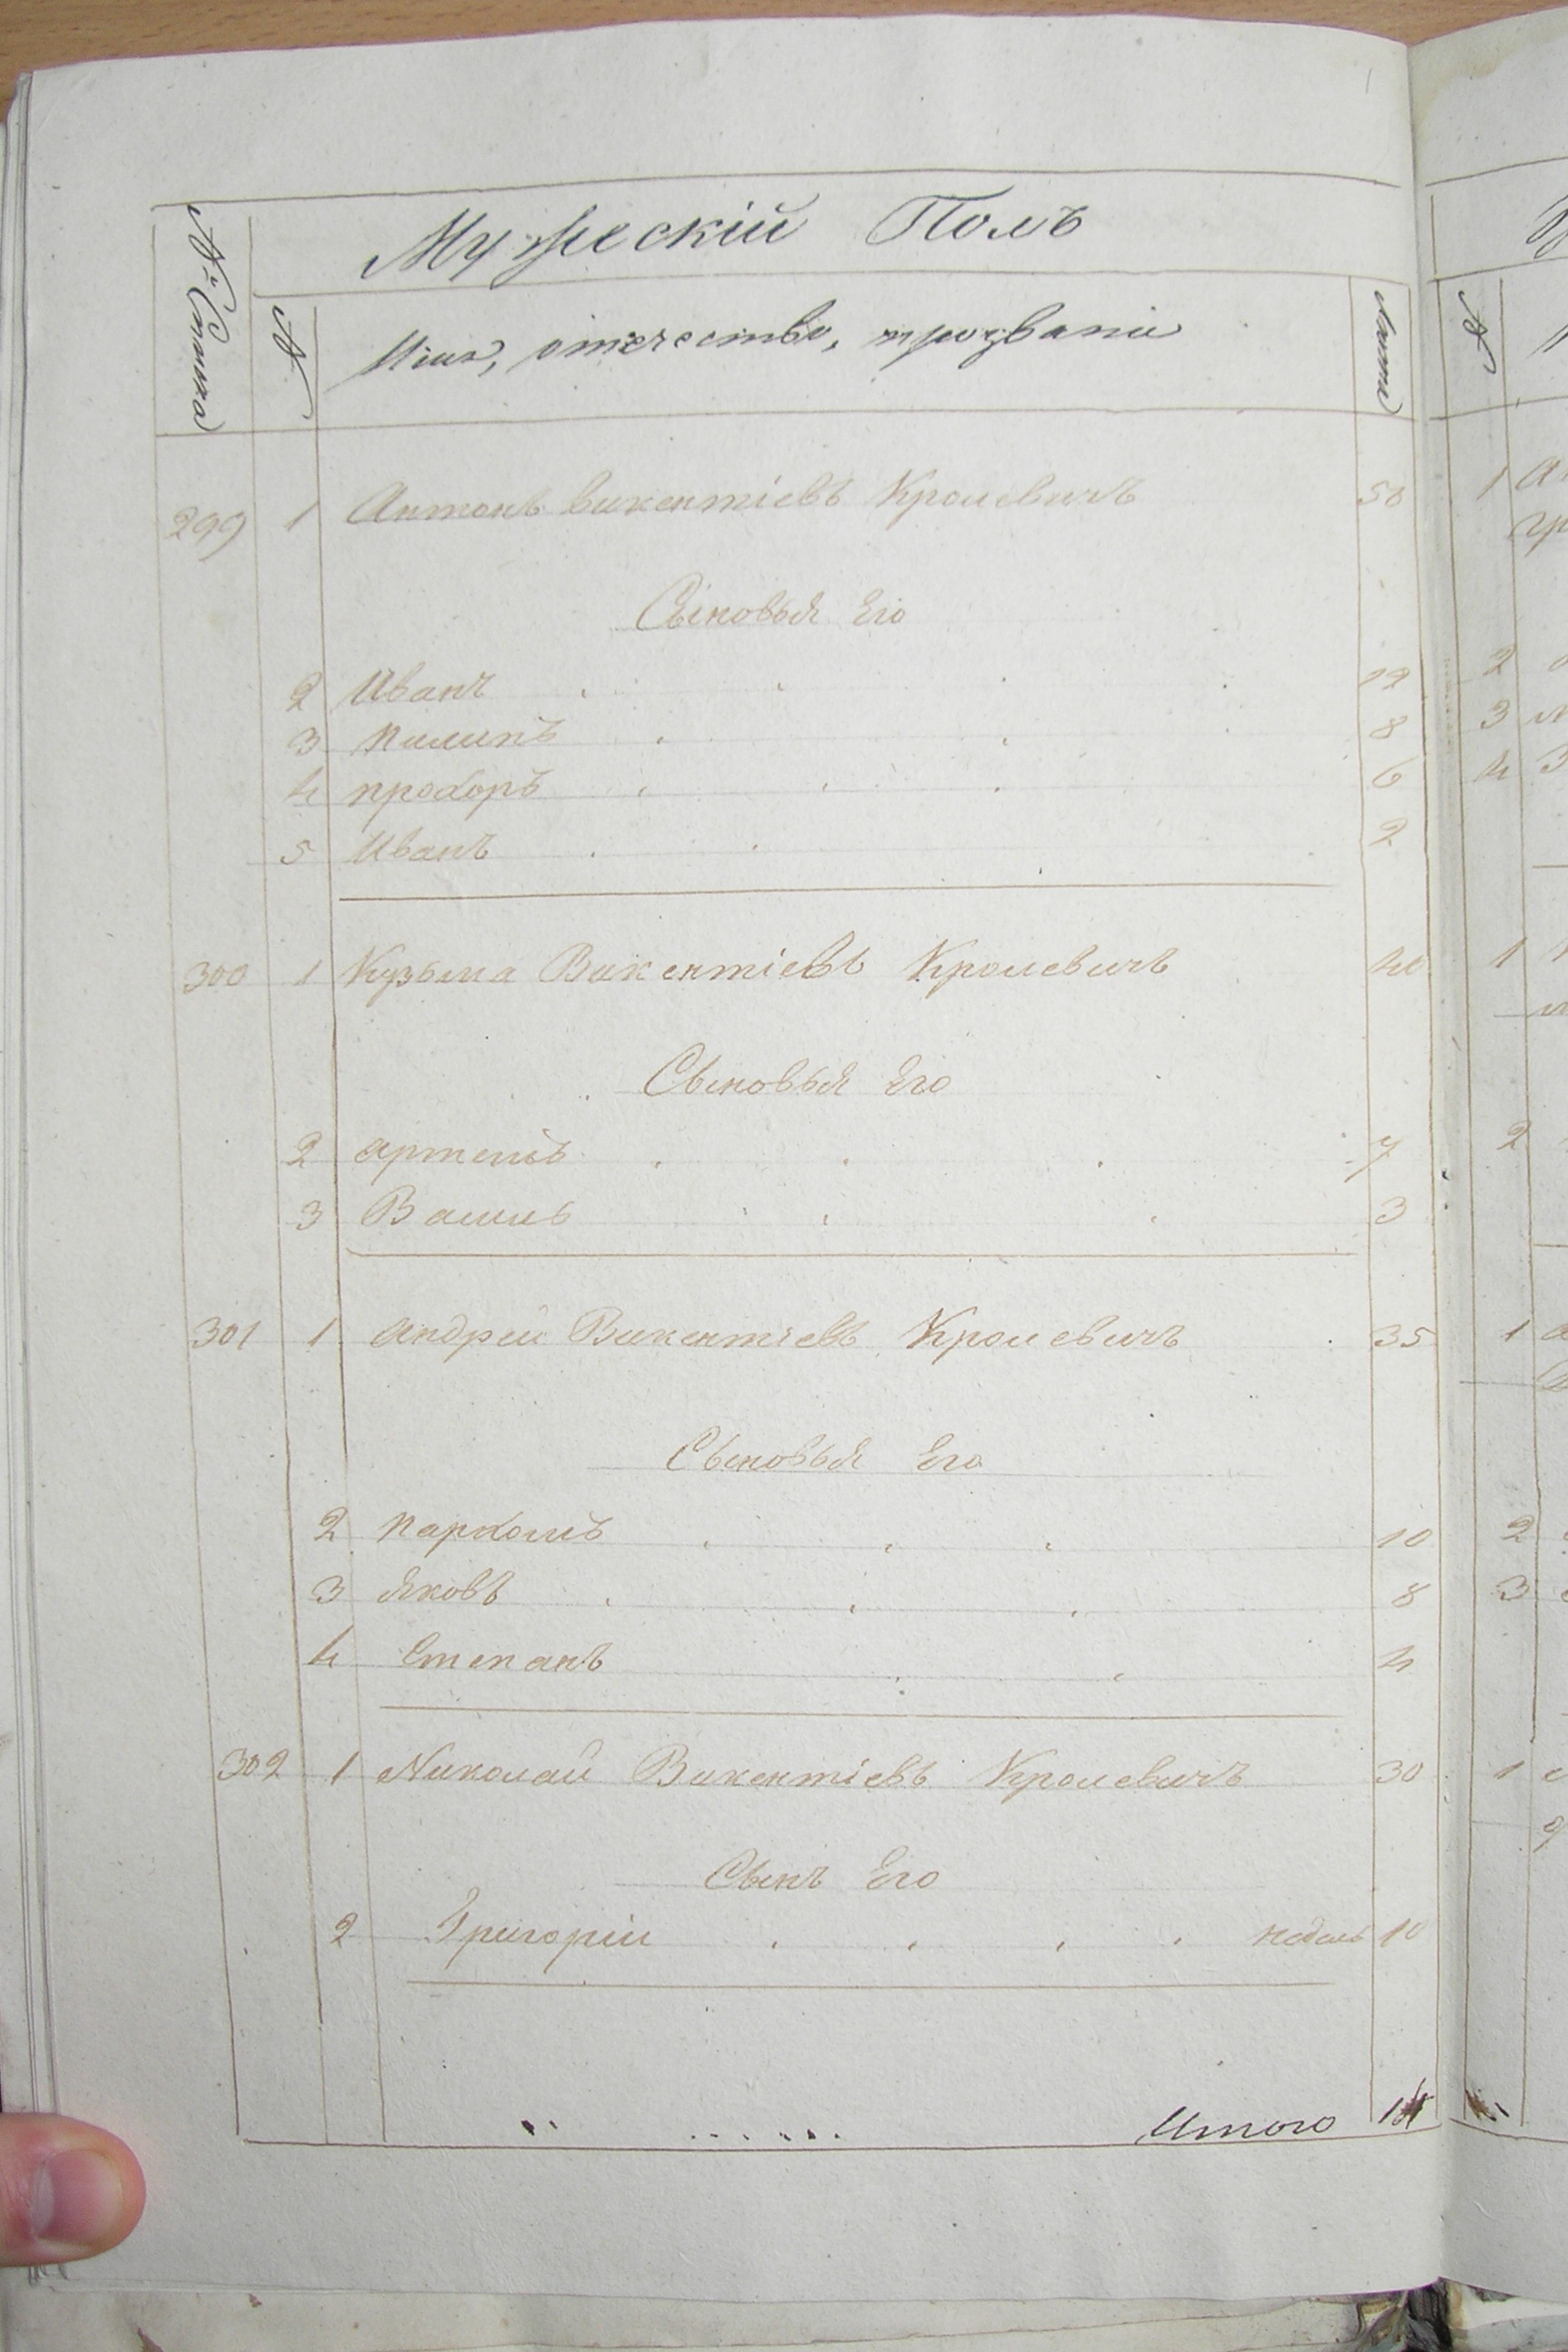 Мужескій Полъ
№ Списка № Имя, отчество, прозваніе Лета
299 1 Антонъ Викентіевъ Кролевичъ 50
Сыновья Его
2 Иванъ 12
3 Пилипъ 8
4 прохоръ 6
5 Иванъ 2
300 1 Кузьма Викентіевъ Кролевичъ 40
Сыновья Его
2 артемъ 7
3 Василь 3
301 1 андрей Викентіевъ Кролевичъ 35
Сыновья Его
2 пархомъ 10
3 Яковъ 8
4 Степанъ 4
302 1 Николай Викентіевъ Кролевичъ 30
Сынъ Его
2 Григорій недель 10
Итого
1
2
3
4
1
2
1
2
3
1